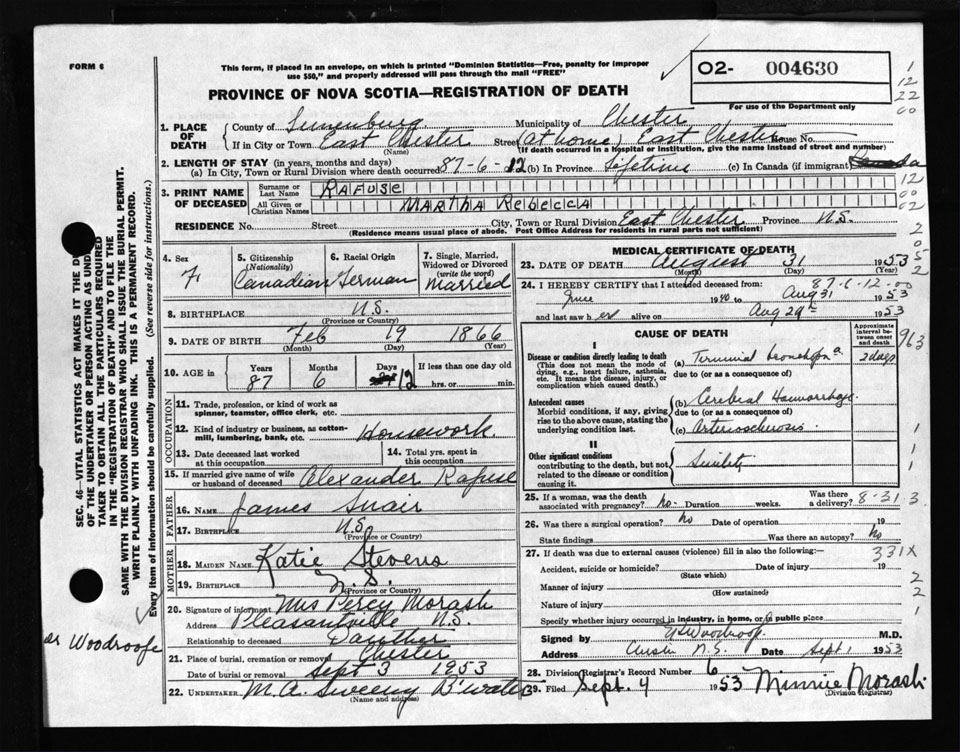 FORM 6
This form, if placed in an envelope, on which is printed "Dominion Statistics—Free, penalty for improper
use $50," and properly addressed will pass through the mail "FREE"
02- 004630
For use of the Department only
PROVINCE OF NOVA SCOTIA—REGISTRATION OF DEATH
1
12
22
00
1. PLACE OF DEATH
County of Lunenburg Municipality of Chester
If in City or Town East Chester Street (at home) East Chester House No.
(Name) (If death occurred in a hospital or institution, give the name instead of street and number)
2. LENGTH OF STAY (in years, months and days)
(a) In City, Town or Rural Division where death occurred 87-6-12 (b) In Province Lifetime (c) In Canada (if immigrant) Canada
3. PRINT NAME OF DECEASED
Surname or Last Name RAFUSE
All Given or Christian Names MARTHA REBECCA
12
00
02
RESIDENCE No. Street City, Town or Rural Division East Chester Province N.S.
(Residence means usual place of abode. Post Office Address for residents in rural parts not sufficient)
2
0
5
2
4. Sex F
5. Citizenship (Nationality) Canadian
6. Racial Origin German
7. Single, Married, Widowed or Divorced (write the word) Married
8. BIRTHPLACE N.S.
(Province or Country)
9. DATE OF BIRTH Feb 19 1866
(Month) (Day) (Year)
10. AGE in Years 87 Months 6 Days 12 If less than one day old
hrs. or min.
OCCUPATION
11. Trade, profession, or kind of work as
spinner, teamster, office clerk, etc.
12. Kind of industry or business, as cotton-
mill, lumbering, bank, etc. Housework
13. Date deceased last worked
at this occupation
14. Total yrs. spent in
this occupation
15. If married give name of wife
or husband of deceased Alexander Rafuse
FATHER
16. NAME James Snair
17. BIRTHPLACE N.S.
(Province or Country)
MOTHER
18. MAIDEN NAME Katie Stevens
19. BIRTHPLACE N.S.
(Province or Country)
20. Signature of informant Mrs Percy Morash
Address Pleasantville N.S.
Relationship to deceased Daughter
21. Place of burial, cremation or removal Chester
Date of burial or removal Sept 3 1953
22. UNDERTAKER M.A. Sweeny B'water
(Name and address)
MEDICAL CERTIFICATE OF DEATH
23. DATE OF DEATH August 31 1953
(Month) (Day) (Year)
87-6-12-00
24. I HEREBY CERTIFY that I attended deceased from:
June 1940 to Aug 31 1953
and last saw her alive on Aug 29th 1953
CAUSE OF DEATH
Approximate interval between onset and death
963
I
Disease or condition directly leading to death
(This does not mean the mode of dying, e.g., heart failure, asthenia, etc. It means the disease, injury, or complication which caused death.)
(a) Terminal bronchopn a 2 days
due to (or as a consequence of)
Antecedent causes
Morbid conditions, if any, giving rise to the above cause, stating the underlying condition last.
(b) Cerebral Haemorrhage.
due to (or as a consequence of)
(c) Arteriosclerosis
1
II
Other significant conditions
contributing to the death, but not related to the disease or condition causing it.
Senility
1
25. If a woman, was the death
associated with pregnancy? No. Duration weeks. Was there a delivery? 8-31-3
26. Was there a surgical operation? No Date of operation 19
State findings Was there an autopsy? No
27. If death was due to external causes (violence) fill in also the following:— 331X
Accident, suicide or homicide? Date of injury 19
(State which)
Manner of injury 2
(How sustained)
Nature of injury 2
Specify whether injury occurred in industry, in home, or in public place 1
Signed by Woodroofe M.D.
Address Chester N.S. Date Sept 1 1953
28. Division Registrar's Record Number 6
29. Filed Sept. 4 1953 Minnie Morash
(Division Registrar)
SEC. 46—VITAL STATISTICS ACT MAKES IT THE
OF THE UNDERTAKER OR PERSON ACTING AS
TAKER TO OBTAIN ALL THE PARTICULARS REQUIRED
IN THE "REGISTRATION OF DEATH" AND TO FILE THE
SAME WITH THE DIVISION REGISTRAR WHO SHALL ISSUE THE BURIAL PERMIT.
WRITE PLAINLY WITH UNFADING INK. THIS IS A PERMANENT RECORD.
Every item of information should be carefully supplied. (See reverse side for instructions.)
Dr Woodroofe